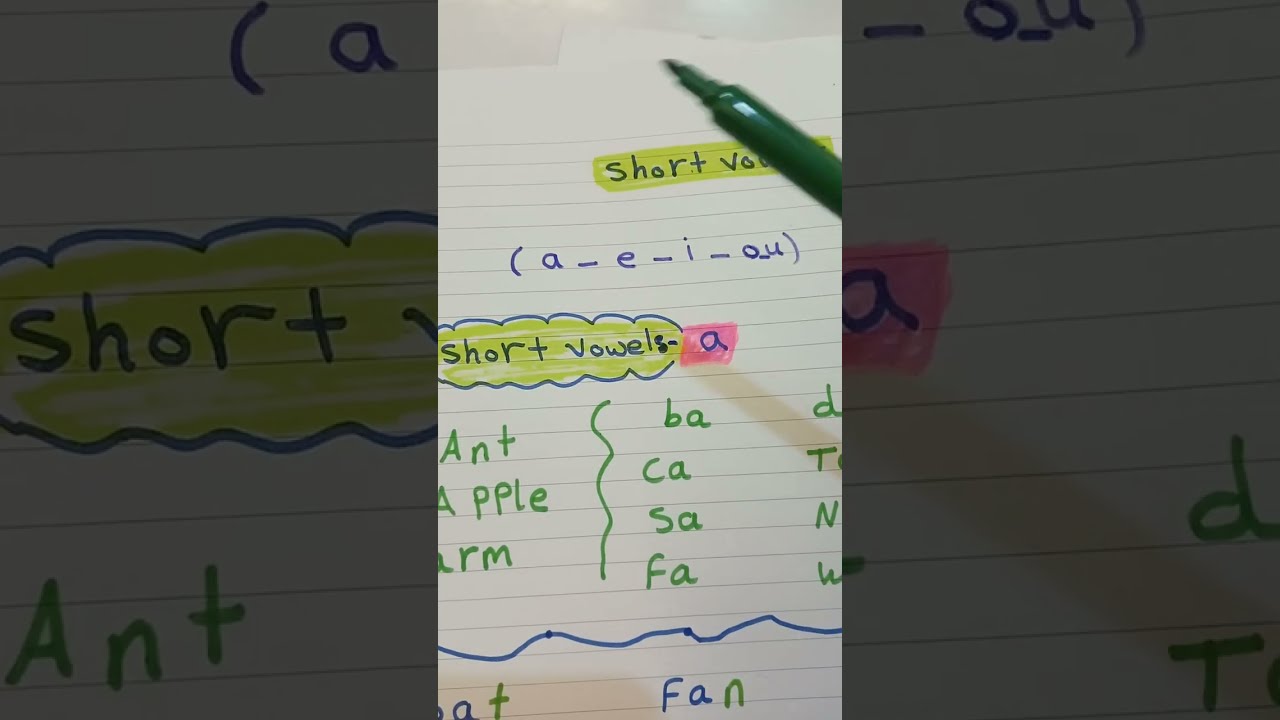 short
(a - e - i - o - u)
short vowels - a
Ant
Apple
arm
ba
ca
sa
Fa
Fan